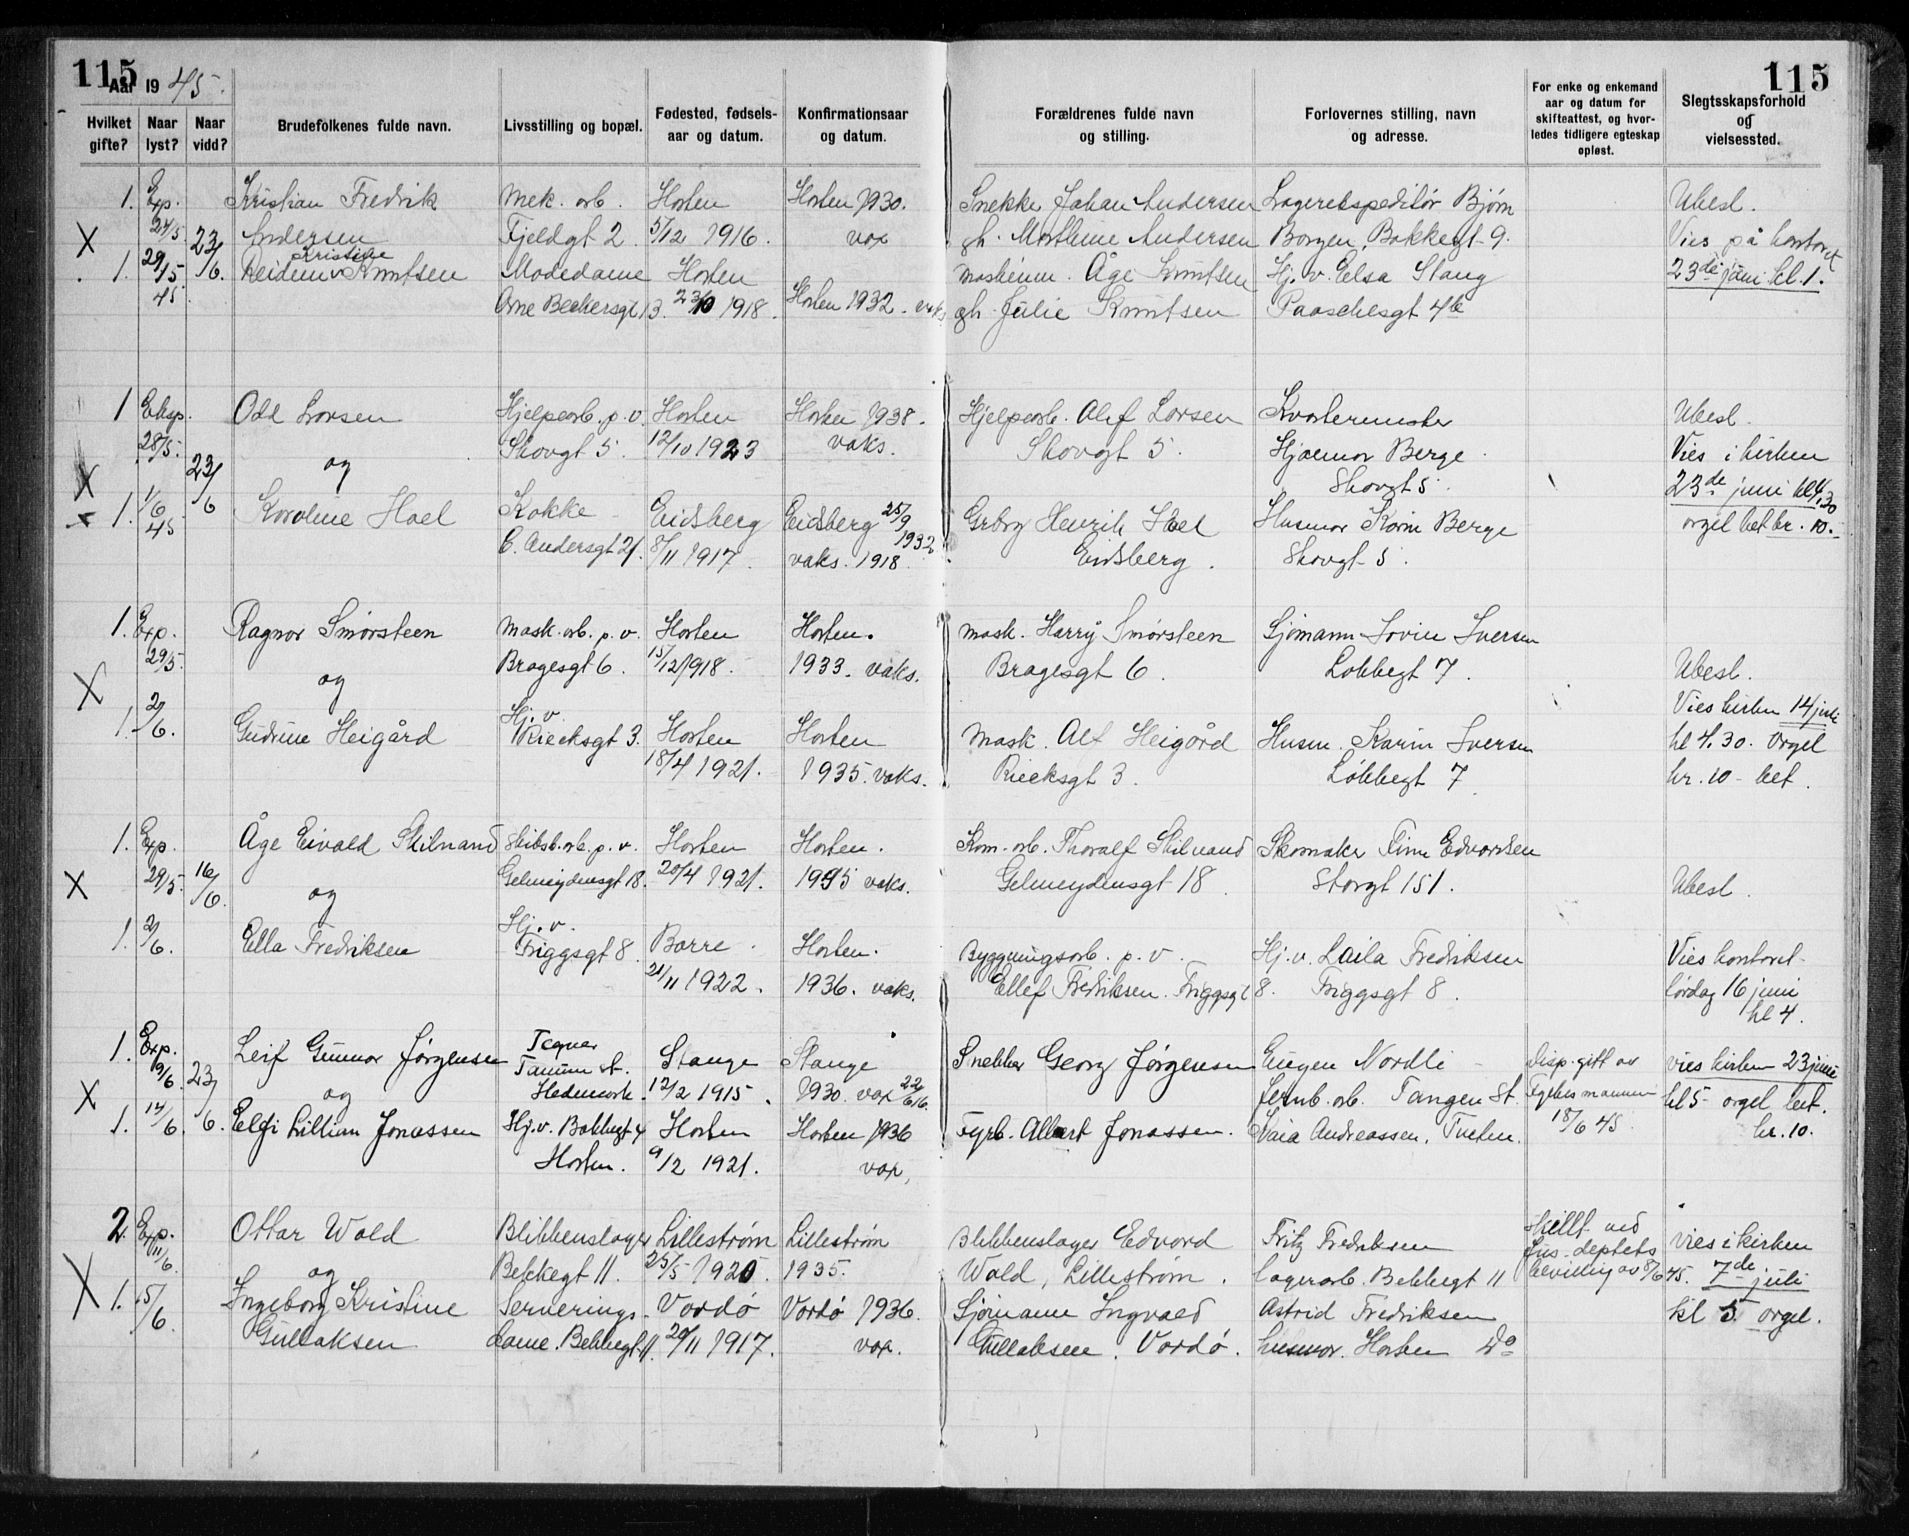 115
Aar 1945.
115
Hvilket gifte?
Naar lyst?
Naar vidd?
Brudefolkenes fulde navn.
Livsstilling og bopæl.
Fødested, fødsels-
aar og datum.
Konfirmationsaar
og datum.
Forældrenes fulde navn
og stilling.
Forlovernes stilling, navn
og adresse.
For enke og enkemand
aar og datum for
skifteattest, og hvor-
ledes tidligere egteskap
opløst.
Slegtsskapsforhold
og
vielsessted.
1. Exp. Kristian Fredrik Mek. arb. Horten Horten 1930. Snekke Johan Andersen Lagerekspeditør Bjørn Ubesl.
X 24/5 23/6 Andersen Fjeldgt 2 5/12 1916. vax gh. Marthine Andersen Borgen, Bakkegt 9. Vies på kontoret
1. 29/5 45. Reidun Kristine Knutsen Modedame Horten Åge Knutsen Hj. v. Elsa Stang 23de juni kl. 1.
Arne Bechersgt 13. 23/10 1918. Horten 1932. vaks gh. Julie Knutsen Paaschesgt 4b
1 Eksp. Odd Larsen Hjelpearb. p. v. Horten Horten 1938. Hjelpearb. Olef Larsen Kvartermester Ubesl.
28/5. Skovgt 5. 12/10 1923 vaks. Skovgt 5. Hjalmar Berge. Vies i kirken
X 23/6 og Skovgt 5. 23de juni kl 4,30
1. 1/6 45 Karoline Hoel Kokke Eidsberg Eidsberg 25/9 1932 Grbrg Henrik Hoel Husmor Karin Berge orgel bet kr. 10.-
C. Andersgt 21. 8/11 1917. vaks. 1918. Eidsberg. Skovgt 5.
1. Exp. Ragnar Smørsteen Mask. arb. p. v. Horten Horten. Mask. Harry Smørsteen Sjømann Iversen
29/5. Bragesgt 6. 15/12 1918. 1933. vaks. Bragesgt 6. Løkkegt 7. Ubesl.
X og Vies kirken 14 juli
1. 2/6. Gudrun Heigård Hj. v. Riecksgt 3. Horten Horten Mask. Alf Heigård Husm. Karin Iversen kl 4.30. Orgel
18/4 1921. 1935. vaks. Riecksgt 3. Løkkegt 7 kr. 10 - bet.
1. Exp. Åge Eivald Skilnand Skibsb. arb. p. v. Horten Horten. Kom. arb. Thoralf Skilnand Skomaker Finn Edvardsen
X 29/5. 16/6 og Gelmeydensgt 18. 20/4 1921. 1935 vaks. Gelmeydensgt 18. Storgt 151. Ubesl.
1. 2/6. Ella Fredriksen Hj. v. Friggsgt 8. Borre. Horten. Bygningsarb. p. v. Hj. v. Laila Fredriksen Vies kontoret
21/11 1922. 1936. vaks. Ellef Fredriksen. Friggsgt 8. Friggsgt 8. lørdag 16 juni
kl 4.
1. Exp. Leif Gunnar Jørgensen Stange Stange Snekker Georg Jørgensen Eugen Nordli Disp. gitt av vies kirken 23 juni
X 9/6. 23/6. og Hedemark. 12/2 1915. 1930. vax Jernb. arb. Tangen St. fylkesmannen kl 5 - orgel bet.
1. 14/6. Elfi Lillian Jonassen Hj. v. Bakkegt 4 Horten Horten 1936 Fyrb. Albert Jonassen. Andreassen, 18/6 45. kr. 10.
Horten. 9/2 1921. vax,
2. Exp. Ottar Wold Blikkenslager Lillestrøm Lillestrøm Blikkenslager Edvard Fritz Fredriksen Skillt ved vies i kirken
11/6. og Bekkegt 11. 25/5 1920. 1935. Wold, Lillestrøm. Lagerarb. Bekkegt 11 Jus. deptets bevilling av 8/6 45. 7de juli
X 1. 15/6. Ingeborg Kristine Serverings- Vardø Vardø 1936. Sjømann Ingvald Astrid Fredriksen kl 5 orgel.
Gullaksen dame. Bekkegt 11. 20/11 1917. vax. Gullaksen, Vardø. husmor. Horten Do